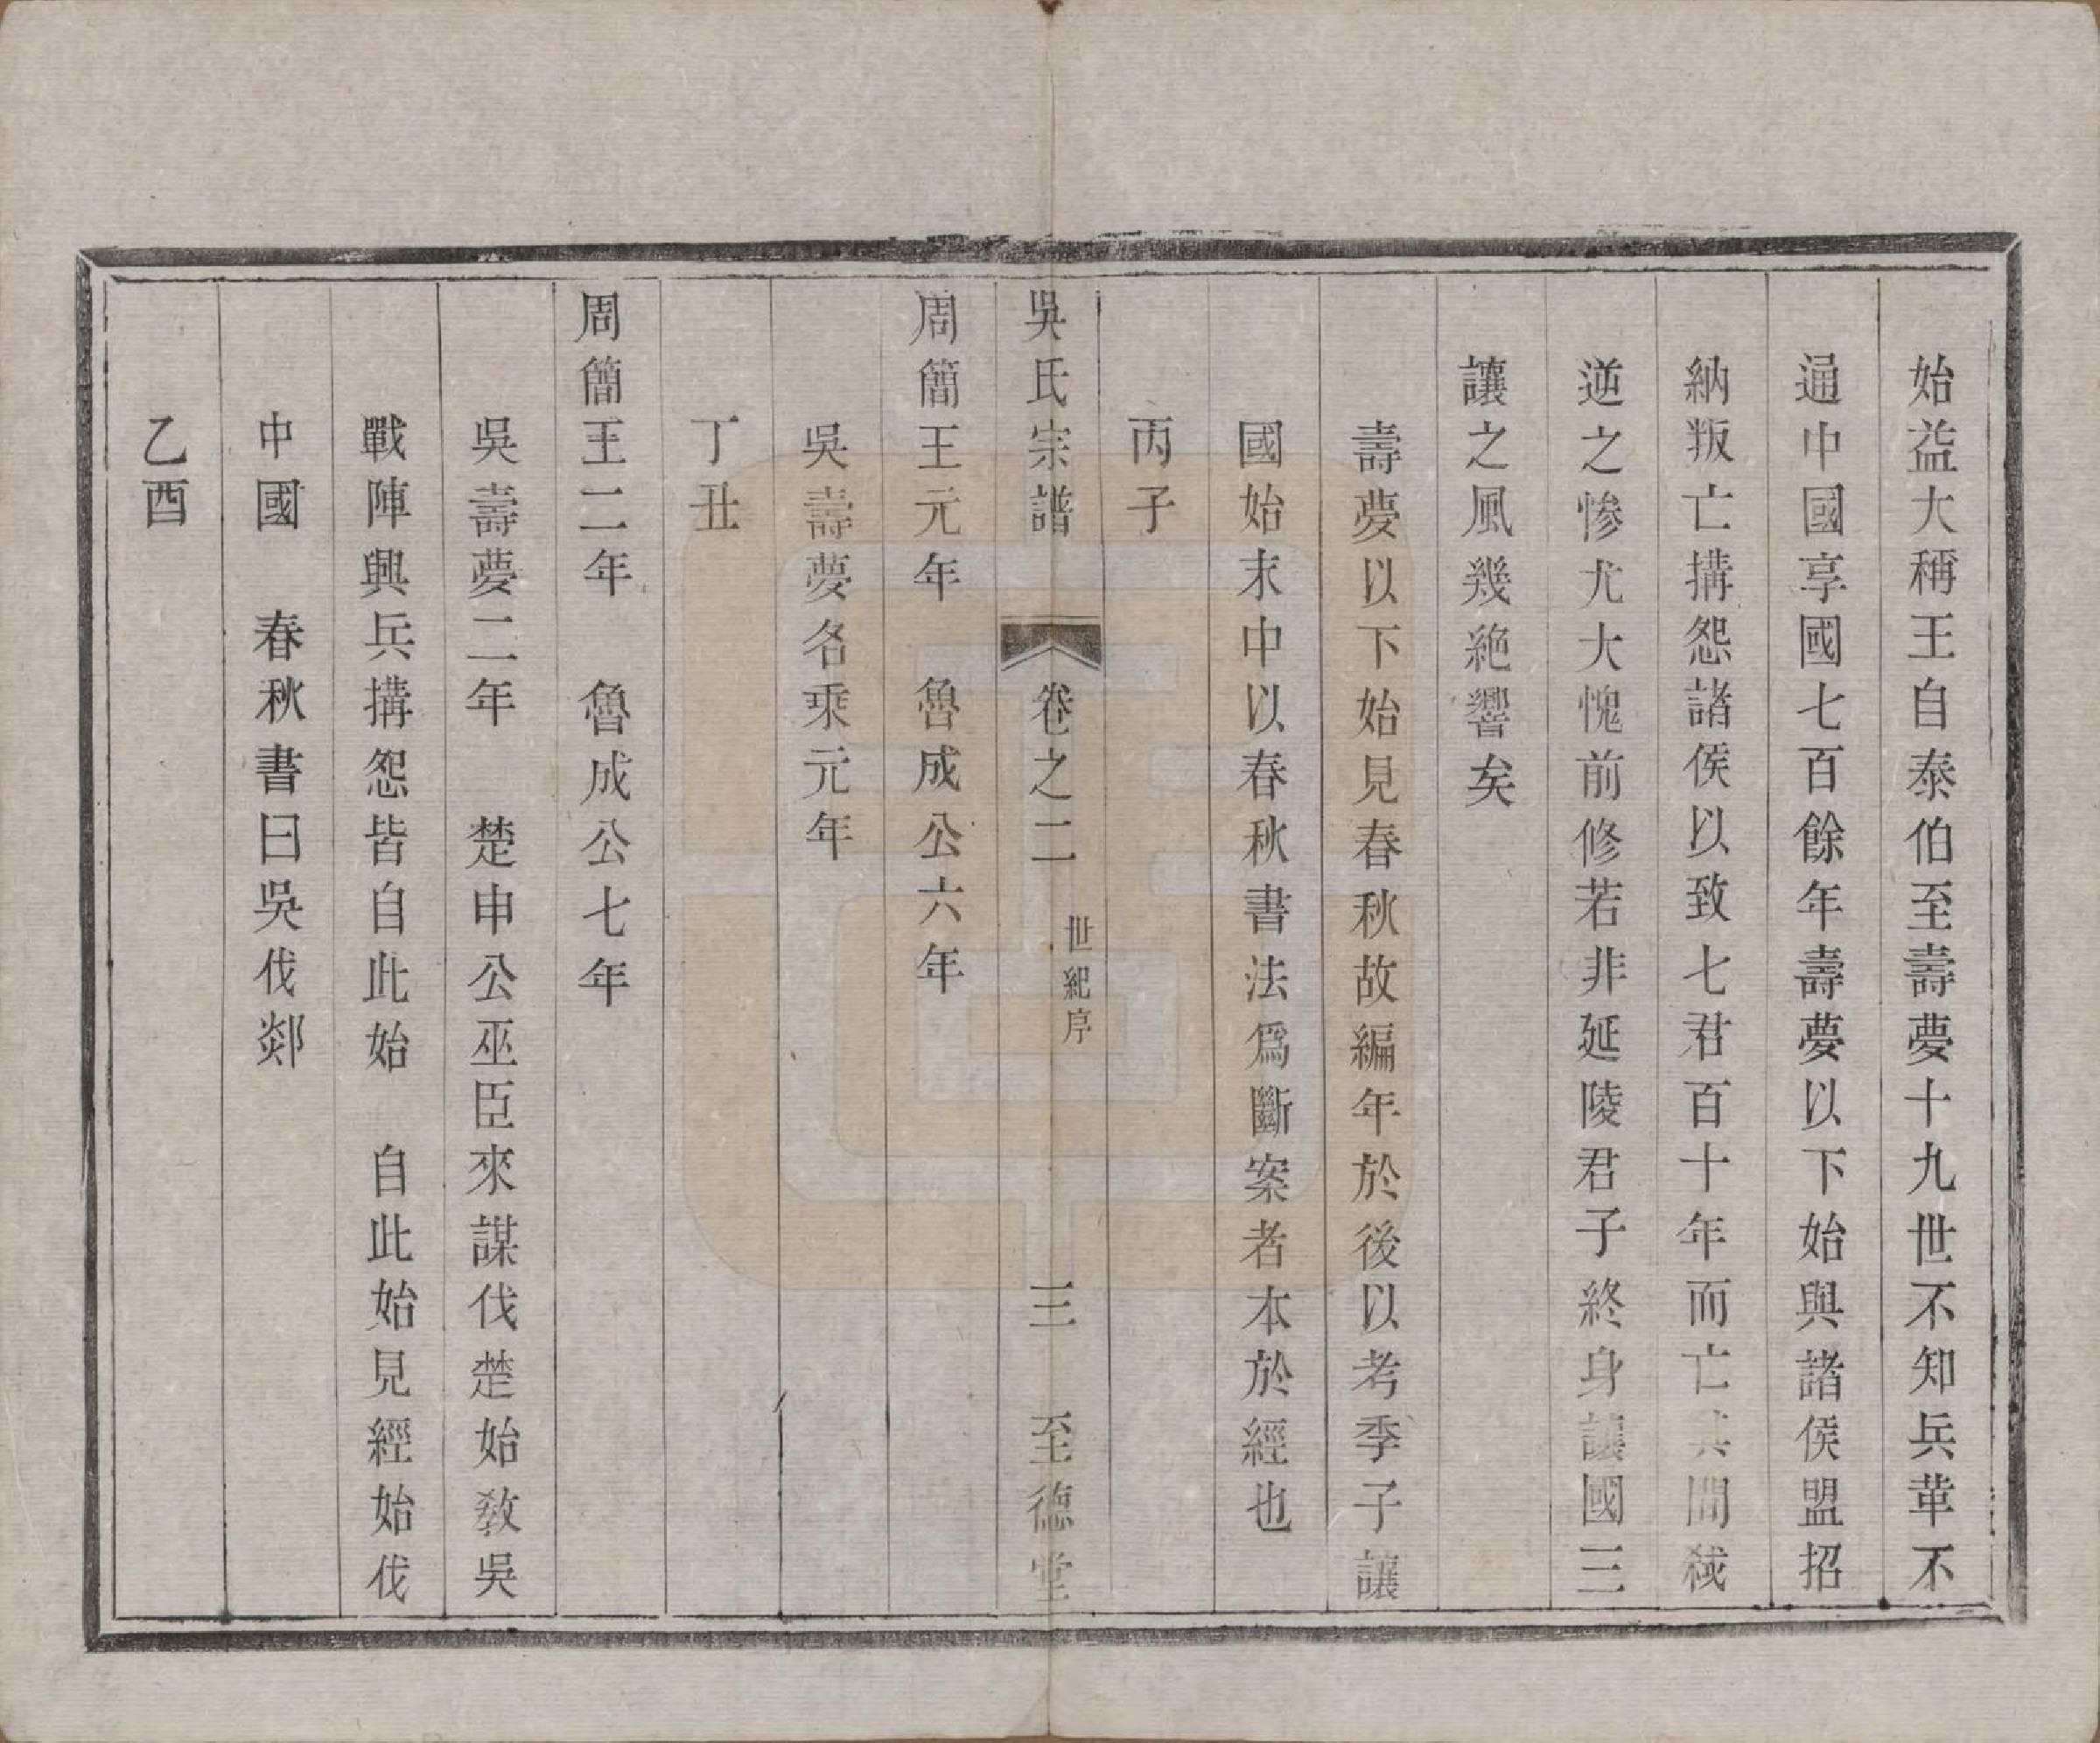 始益大稱王自泰伯至壽夢十九世不知兵革不
通中國享國七百餘年壽夢以下始與諸侯盟招
納叛亡搆怨諸侯以致七君百十年而亡其間弒
逆之慘尤大愧前修若非延陵君子終身讓國三
讓之風幾絶響矣
壽夢以下始見春秋故編年於後以考季子讓
國始末中以春秋書法爲斷案者本於經也
丙子
吳氏宗譜 卷之二 世紀序 三 至德堂
周簡王元年 魯成公六年
吳壽夢名乘元年
丁丑
周簡王二年 魯成公七年
吳壽夢二年 楚申公巫臣來謀伐楚始教吳
戰陣興兵搆怨皆自此始 自此始見經始伐
中國 春秋書曰吳伐郯
乙酉